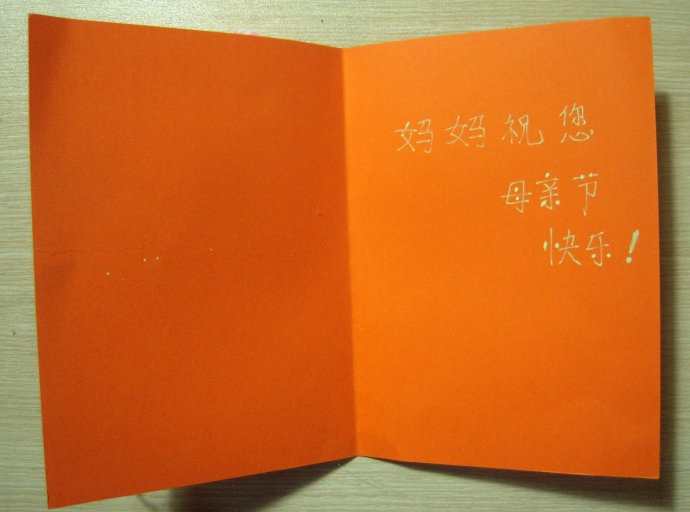 妈妈祝您
母亲节
快乐!